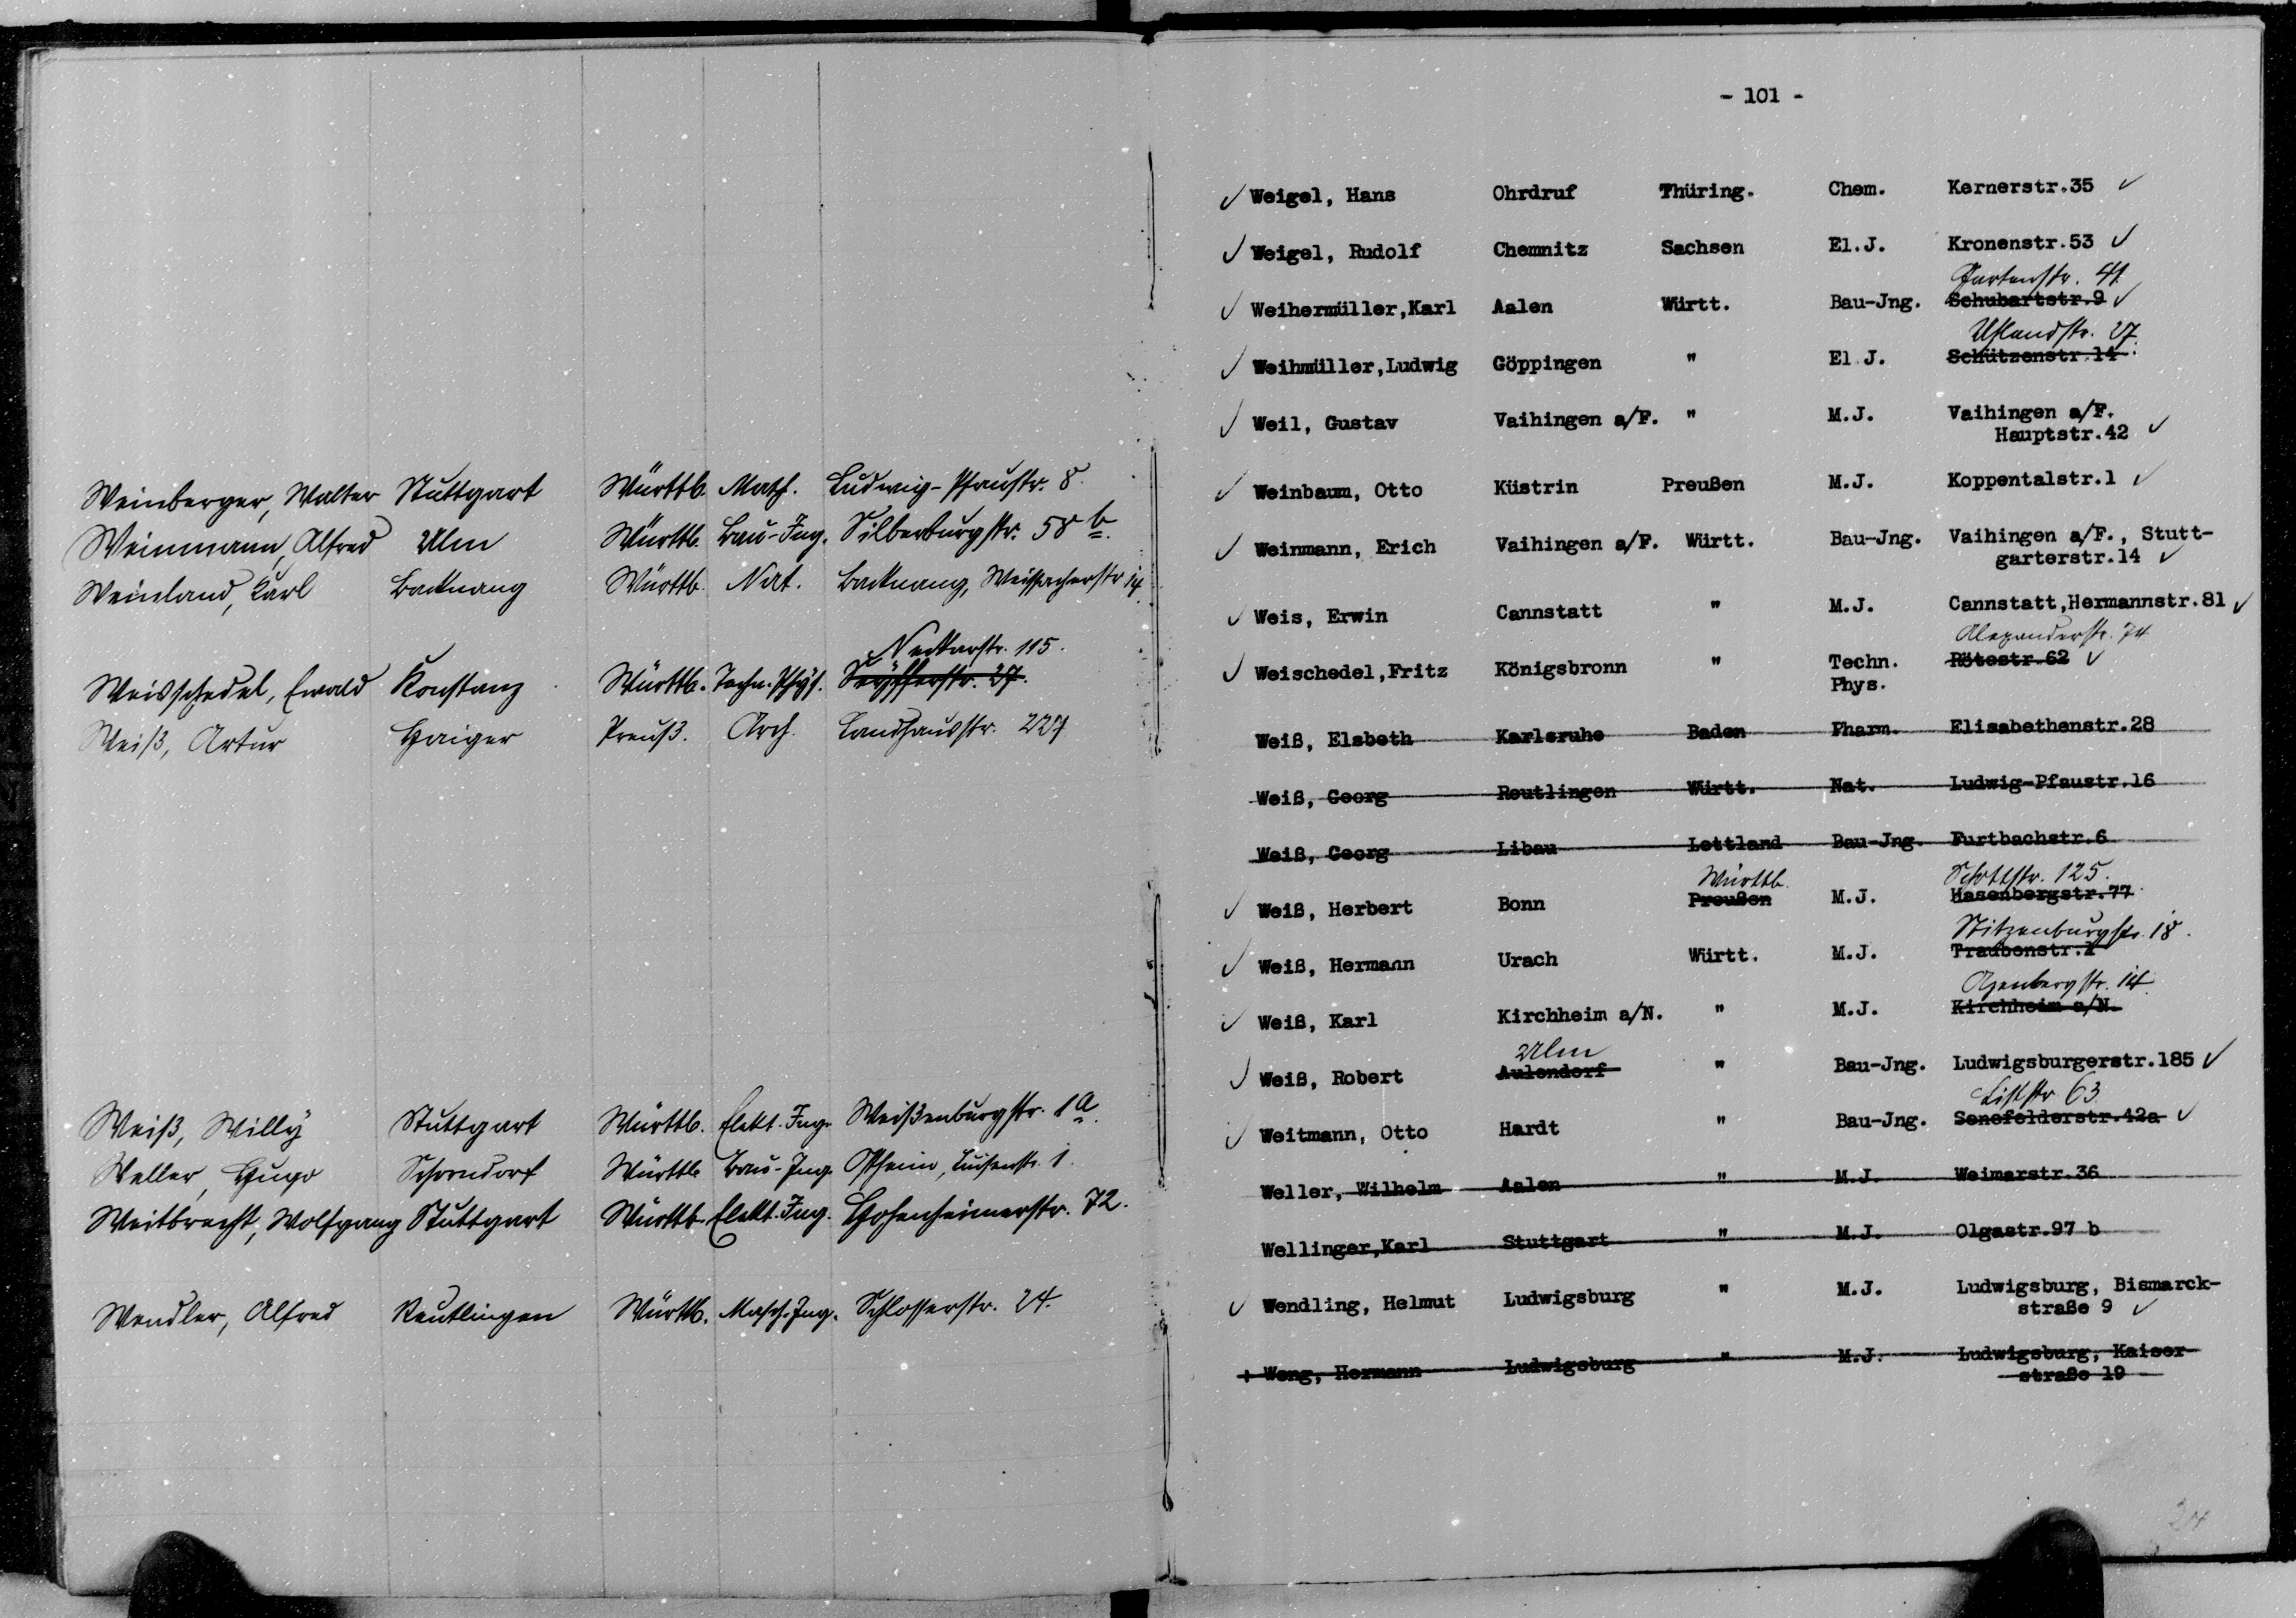 Weinberger, Walter Stuttgart Württb. Math. Ludwig-Pfaustr. 8.
Weinmann, Alfred Ulm Württb. Bau-Ing. Silberburgstr. 58 b.
Weinland, Karl Backnang Württb. Nat. Backnang, Weissacherstr. 14.
Neckarstr. 115.
Weisschedel, Ewald Konstanz Württb. Techn. Phys. Seyfferstr. 27.
Weiß, Artur Haiger Preuß. Arch. Landhausstr. 227
Weiß, Willy Stuttgart Württb. Elekt. Ing. Weißenburgstr. 1 a.
Weller, Hugo Schorndorf Württb. Bau-Ing. Ostheim, Luisenstr. 1.
Weitbrecht, Wolfgang Stuttgart Württb. Elekt. Ing. Hohenheimerstr. 72.
Wendler, Alfred Reutlingen Württb. Masch. Ing. Schlosserstr. 24.
- 101 -
✓ Weigel, Hans Ohrdruf Thüring. Chem. Kernerstr.35 ✓
✓ Weigel, Rudolf Chemnitz Sachsen El.J. Kronenstr.53 ✓
Gartenstr. 41
✓ Weihermüller,Karl Aalen Württ. Bau-Jng. Schubartstr.9 ✓
Uhlandstr. 27.
✓ Weihmüller,Ludwig Göppingen " El J. Schützenstr.14
✓ Weil, Gustav Vaihingen a/F. " M.J. Vaihingen a/F.
Hauptstr.42 ✓
✓ Weinbaum, Otto Küstrin Preußen M.J. Koppentalstr.1 ✓
✓ Weinmann, Erich Vaihingen a/F. Württ. Bau-Jng. Vaihingen a/F., Stutt-
garterstr.14 ✓
✓ Weis, Erwin Cannstatt " M.J. Cannstatt,Hermannstr.81 ✓
Alexanderstr. 74
✓ Weischedel,Fritz Königsbronn " Techn. Rötestr.62 ✓
Phys.
Weiß, Elsbeth Karlsruhe Baden Pharm. Elisabethenstr.28
Weiß, Georg Reutlingen Württ. Nat. Ludwig-Pfaustr.16
Weiß, Georg Libau Lettland Bau-Jng. Furtbachstr.6
Württb. Schottstr. 125.
✓ Weiß, Herbert Bonn Preußen M.J. Hasenbergstr.77
Stitzenburgstr. 18.
✓ Weiß, Hermann Urach Württ. M.J. Traubenstr.1
Azenbergstr. 14.
✓ Weiß, Karl Kirchheim a/N. " M.J. Kirchheim a/N.
Ulm
✓ Weiß, Robert Aulendorf " Bau-Jng. Ludwigsburgerstr.185 ✓
Liststr 63
✓ Weitmann, Otto Hardt " Bau-Jng. Senefelderstr.42a ✓
Weller, Wilhelm Aalen " M.J. Weimarstr.36
Wellinger,Karl Stuttgart " M.J. Olgastr.97 b
✓ Wendling, Helmut Ludwigsburg " M.J. Ludwigsburg, Bismarck-
straße 9 ✓
+ Weng, Hermann Ludwigsburg " M.J. Ludwigsburg, Kaiser-
straße 19